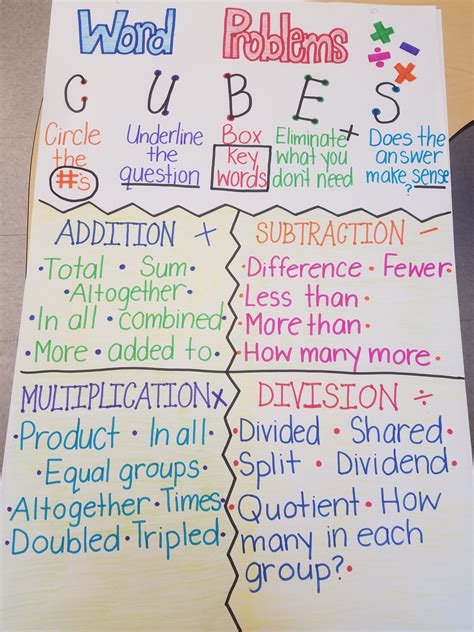 Word Problems
C U B E S
Circle the #'s
Underline the question
Box key words
Eliminate what you don't need
Does the answer make sense?
ADDITION +
• Total • Sum
• Altogether •
• In all • combined
• More • added to •
SUBTRACTION −
• Difference • Fewer
• Less than •
• More than •
• How many more •
MULTIPLICATION x
• Product • In all •
• Equal groups •
• Altogether • Times
• Doubled • Tripled •
DIVISION ÷
• Divided • Shared •
• Split • Dividend •
• Quotient • How
many in each
group? •